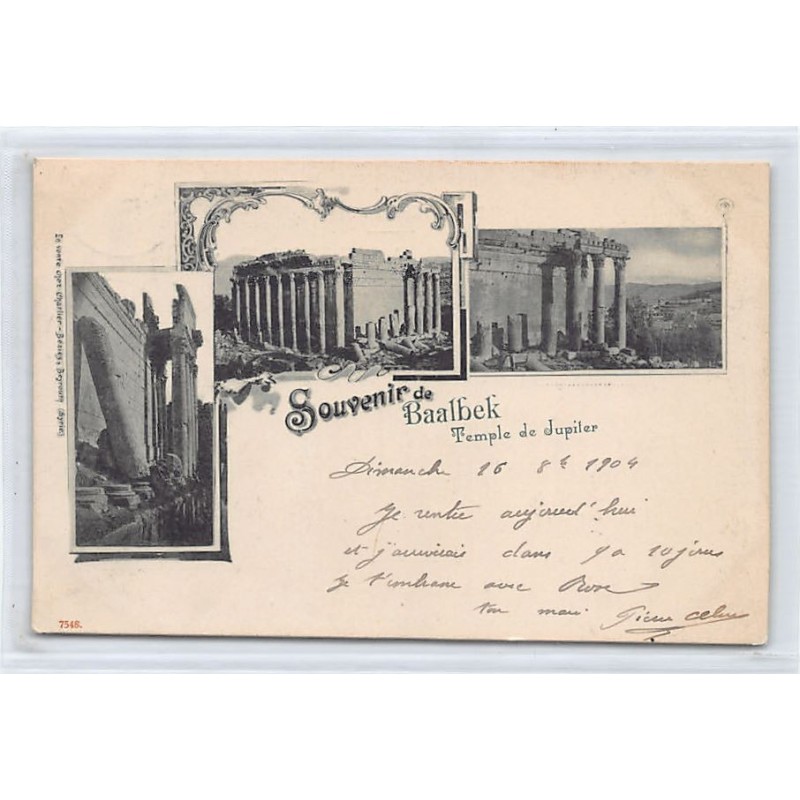 En vente chez Charlier-Béziès, Beyrouth (Syrie).
Souvenir de
Baalbek
Temple de Jupiter
Dimanche 16 8bre 1904
Je rentre aujourd'hui
et j'arriverais dans 9 a 10 jours
Je t'embrasse avec Rose
ton mari Pierre
7548.